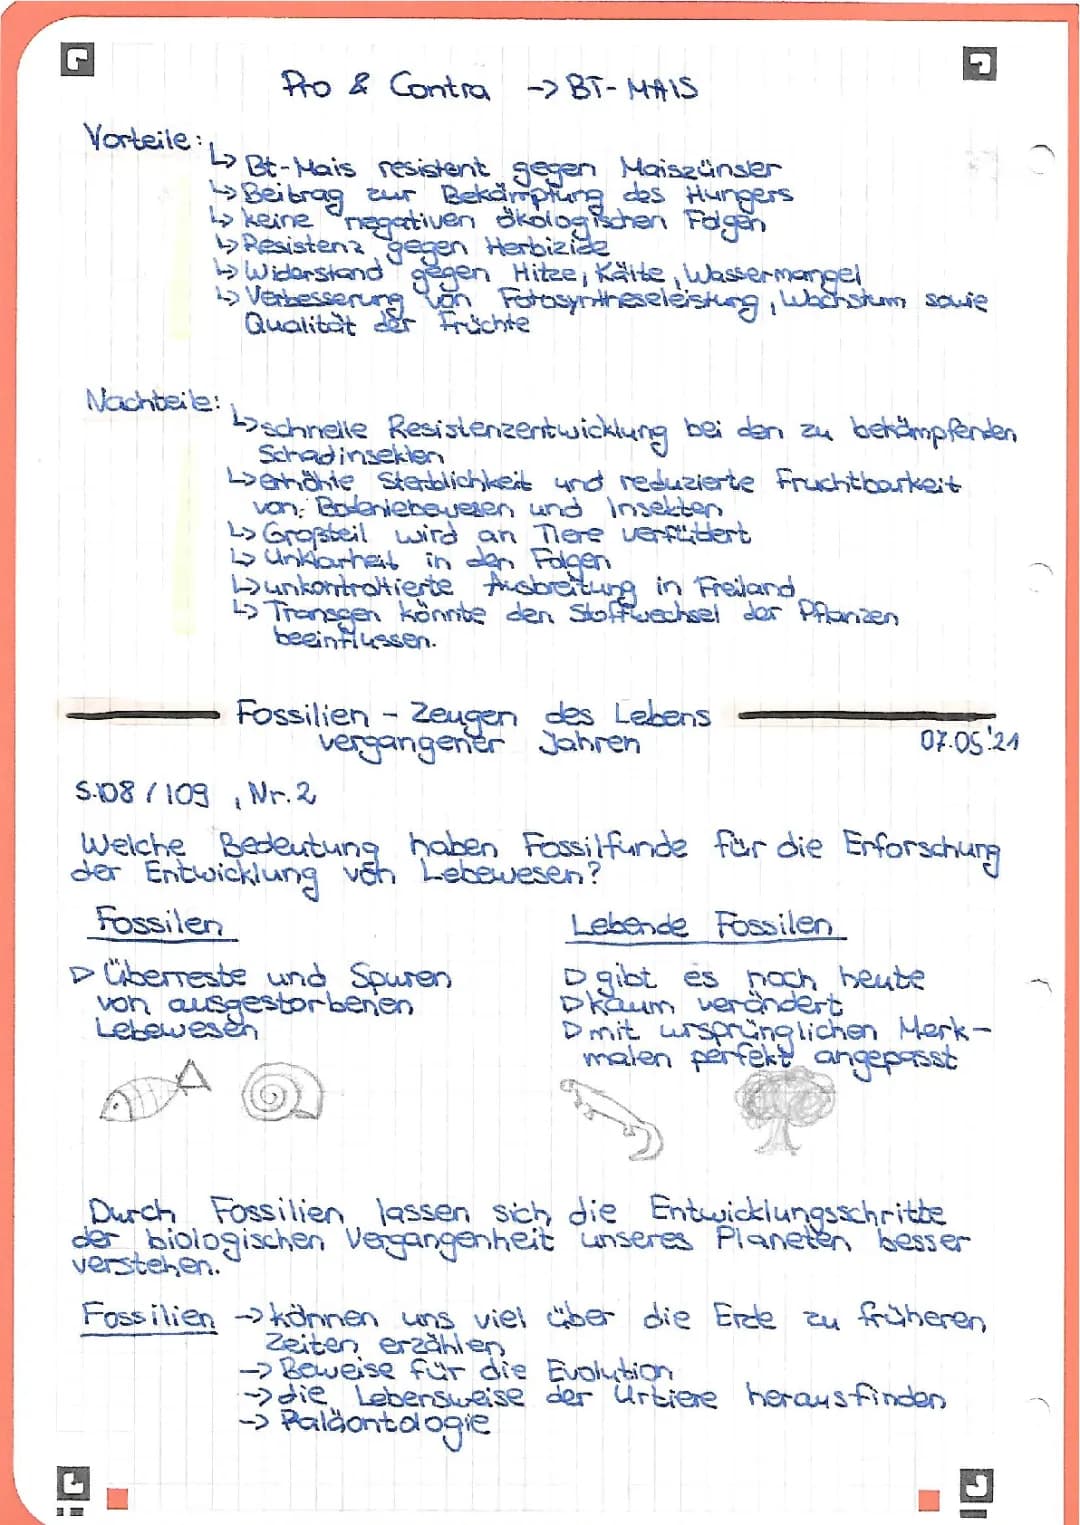 Pro & Contra -> BT-MAIS
Vorteile:
↳ Bt-Mais resistent gegen Maiszünsler
↳ Beitrag zur Bekämpfung des Hungers
↳ keine negativen ökologischen Folgen
↳ Resistenz gegen Herbizide
↳ Widerstand gegen Hitze, Kälte, Wassermangel
↳ Verbesserung von Fotosyntheseleistung, Wachstum sowie
Qualität der Früchte
Nachteile:
↳ schnelle Resistenzentwicklung bei den zu bekämpfenden
Schadinsekten
↳ erhöhte Sterblichkeit und reduzierte Fruchtbarkeit
von: Bodenlebewesen und Insekten
↳ Großteil wird an Tiere verfüttert
↳ Unklarheit in den Folgen
↳ unkontrollierte Ausbreitung in Freiland
↳ Transgen könnte den Stoffwechsel der Pflanzen
beeinflussen.
Fossilien - Zeugen des Lebens
vergangener Jahren
07.05.'21
S.108 / 109, Nr. 2
Welche Bedeutung haben Fossilfunde für die Erforschung
der Entwicklung von Lebewesen?
Fossilen
▷ Überreste und Spuren
von ausgestorbenen
Lebewesen
Lebende Fossilen
▷ gibt es noch heute
▷ kaum verändert
▷ mit ursprünglichen Merk-
malen perfekt angepasst
Durch Fossilien lassen sich die Entwicklungsschritte
der biologischen Vergangenheit unseres Planeten besser
verstehen.
Fossilien -> können uns viel über die Erde zu früheren
Zeiten erzählen
-> Beweise für die Evolution
-> die Lebensweise der Urtiere herausfinden
-> Paläontologie